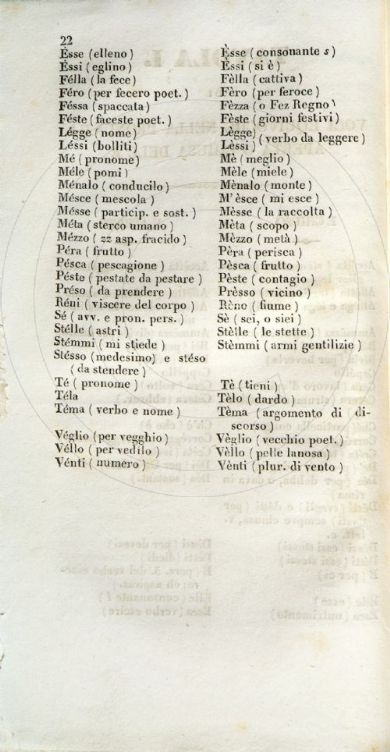 22
Ésse (elleno) Èsse (consonante s)
Éssi (eglino) Èssi (si è)
Félla (la fece) Fèlla (cattiva)
Féro (per fecero poet.) Fèro (per feroce)
Féssa (spaccata) Fèzza (o Fez Regno)
Féste (faceste poet.) Fèste (giorni festivi)
Légge (nome) Lègge) (verbo da leggere)
Léssi (bolliti) Lèssi)
Mé (pronome) Mè (meglio)
Méle (pomi) Mèle (miele)
Ménalo (conducilo) Mènalo (monte)
Mésce (mescola) M'èsce (mi esce)
Mésse (particip. e sost.) Mèsse (la raccolta)
Méta (sterco umano) Mèta (scopo)
Mézzo (zz asp. fracido) Mèzzo (metà)
Péra (frutto) Pèra (perisca)
Pésca (pescagione) Pèsca (frutto)
Péste (pestate da pestare) Pèste (contagio)
Préso (da prendere) Prèsso (vicino)
Réni (viscere del corpo) Rèno (fiume)
Sé (avv. e pron. pers.) Sè (sei, o siei)
Stélle (astri) Stèlle (le stette)
Stémmi (mi stiede) Stèmmi (armi gentilizie)
Stésso (medesimo) e stéso
(da stendere)
Té (pronome) Tè (tieni)
Téla Tèlo (dardo)
Téma (verbo e nome) Tèma (argomento di di-
scorso)
Véglio (per vegghio) Vèglio (vecchio poet.)
Véllo (per vedilo) Vèllo (pelle lanosa)
Vénti (numero) Vènti (plur. di vento)